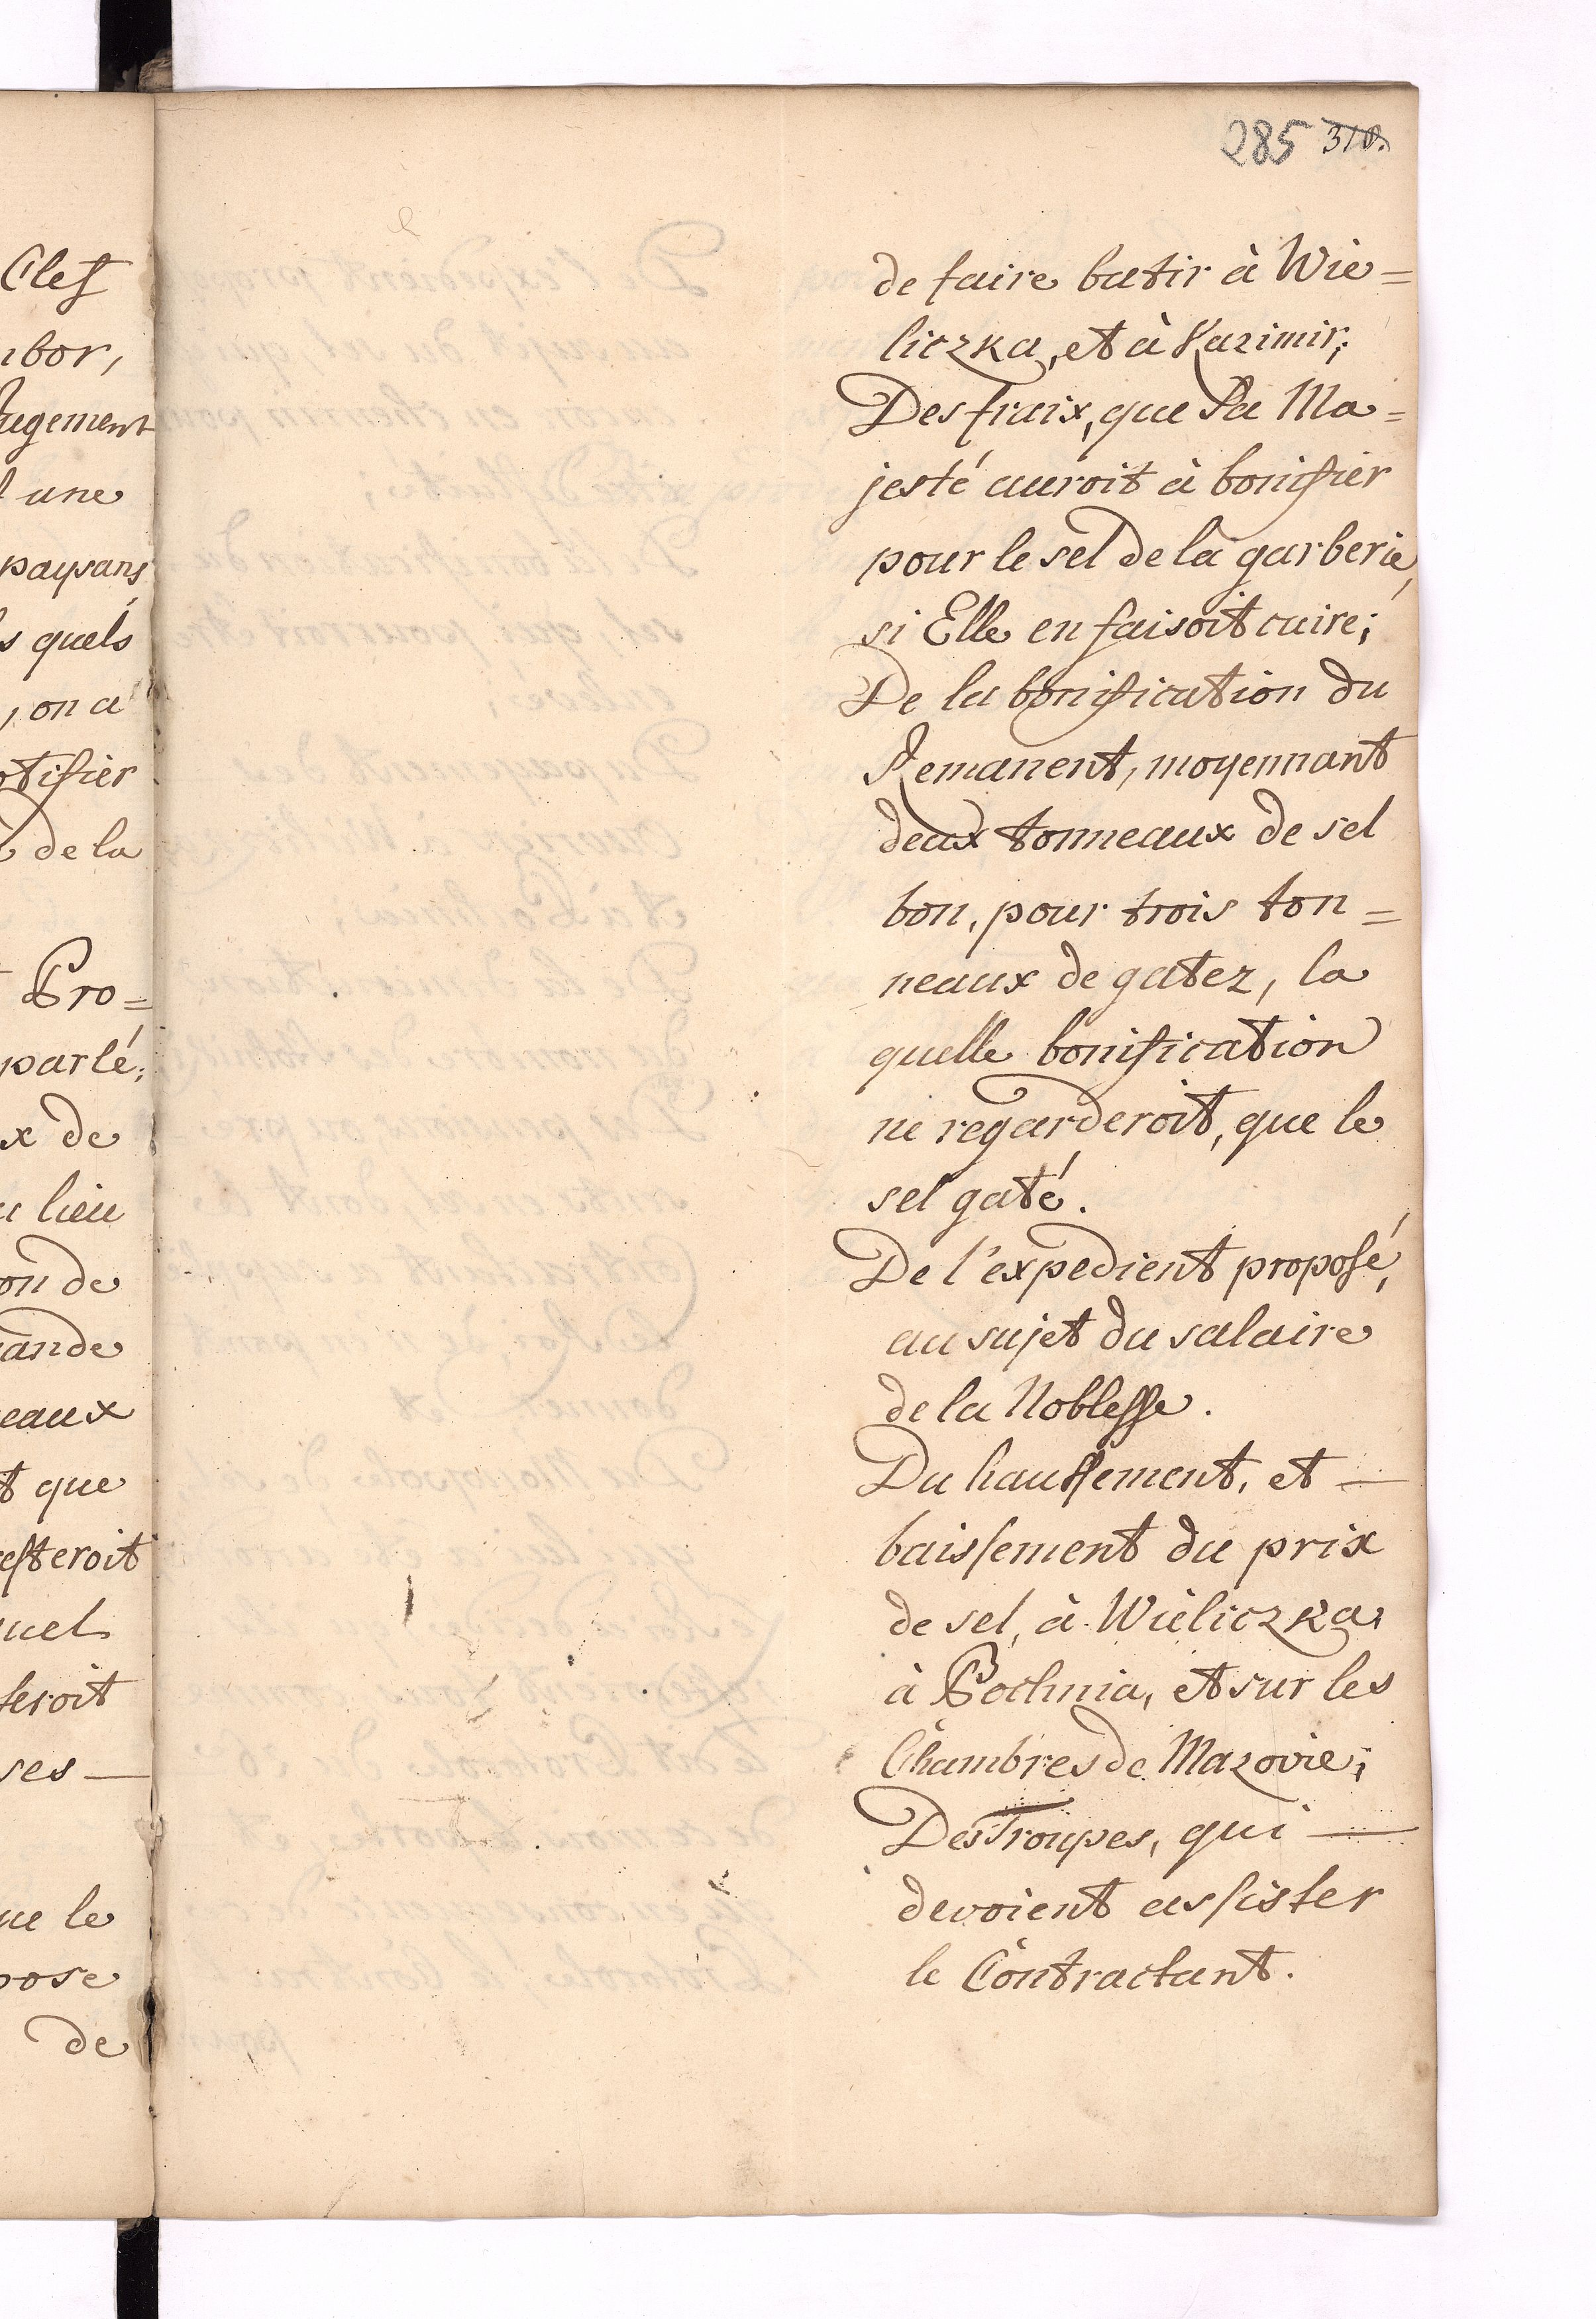 285 318.
de faire batir à Wie=
liczka, et à Kazimir;
Des fraix, que Sa Ma=
jesté auroit à bonifier
pour le sel de la garberie,
si Elle en faisoit cuire;
De la bonification du
Remanent, moyennant
deux tonneaux de sel
bon, pour trois ton=
neaux de gatez, la
quelle bonification
ne regarderoit, que le
sel gaté.
De l'expedient proposé,
au sujet du salaire
de la Noblesse.
Du haussement, et —
baissement du prix
de sel, à Wieliczka,
à Bochnia, et sur les
Chambres de Mazovie;
Des Troupes, qui —
devoient assister
le Contractant.
Clef
mbor,
Jugement
une
paysans,
s quels
, on a
otifier
de la
Pro=
parlé;
x de
lieu
on de
ande
eaux
t que
esteroit
uel
seroit
ses —
ue le
pose
de